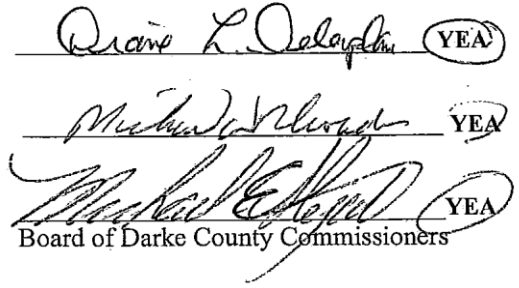 Diane L. Delaplane YEA
YEA
Michael E. Stegall YEA
Board of Darke County Commissioners